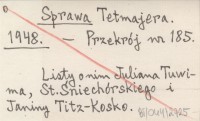 Sprawa Tetmajera.
1948. - Przekrój nr 185.
Listy o nim Juliana Tuwi-
ma, St. Śniechórskiego i
Janiny Titz-Kosko.